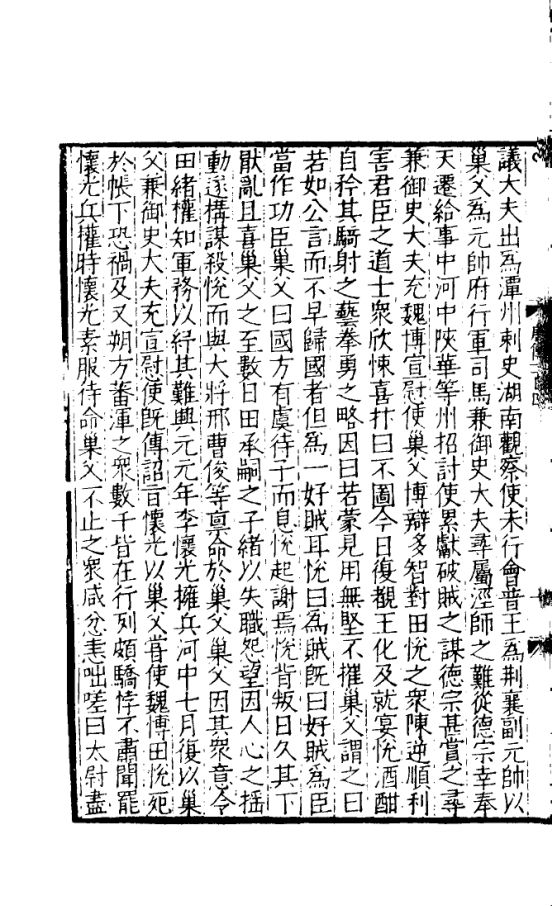 議大夫出為潭州刺史湖南觀察使未行會普王為荆襄副元帥以
巢父為元帥府行軍司馬兼御史大夫尋屬涇師之難從德宗幸奉
天遷給事中河中陝華等州招討使累獻破賊之謀德宗甚賞之尋
兼御史大夫充魏博宣慰使巢父博辯多智對田悅之衆陳逆順利
害君臣之道士衆欣悚喜抃曰不圖今日復覩王化及就宴悅酒酣
自矜其騎射之藝拳勇之略因曰若蒙見用無堅不摧巢父謂之曰
若如公言而不早歸國者但為一好賊耳悅曰為賊旣曰好賊為臣
當作功臣巢父曰國方有虞待子而息悅起謝焉悅背叛日久其下
猒亂且喜巢父之至數日田承嗣之子緒以失職怨望因人心之揺
動遂構謀殺悅而與大將邢曹俊等禀命於巢父巢父因其衆意令
田緒權知軍務以紓其難興元元年李懷光擁兵河中七月復以巢
父兼御史大夫充宣慰使旣傳詔旨懷光以巢父甞使魏博田悅死
於帳下恐禍及又朔方蕃渾之衆數千皆在行列頗驕悖不肅聞罷
懷光兵權時懷光素服待命巢父不止之衆咸忿恚咄嗟曰太尉盡